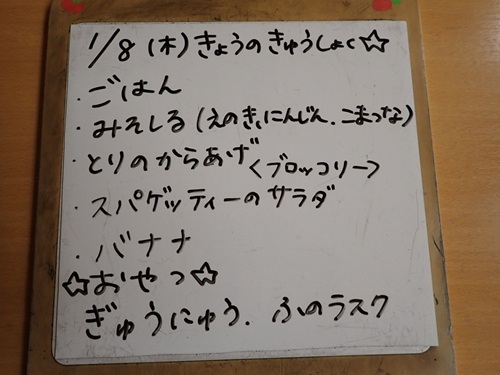 1/8 (木) きょうのきゅうしょく☆
・ごはん
・みそしる (えのき、にんじん、こまつな)
・とりのからあげ <ブロッコリー>
・スパゲッティーのサラダ
・バナナ
☆おやつ☆
ぎゅうにゅう、ふのラスク